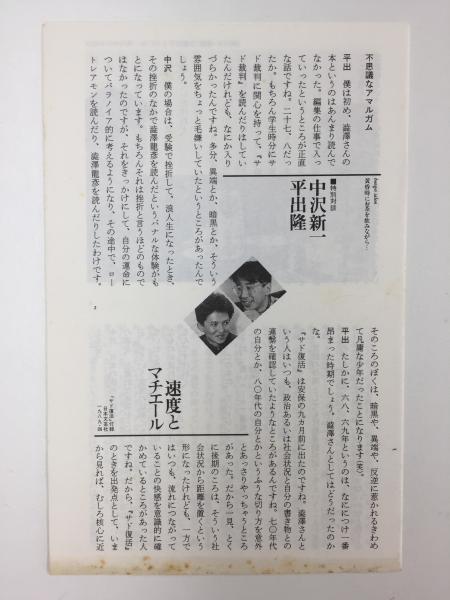 不思議なアマルガム
平出　僕は初め、澁澤さんの
本というのはあんまり読んで
なかった。編集の仕事で入っ
ていったというところが正直
な話ですね。二十七、八だっ
たか。もちろん学生時分にサ
ド裁判に関心を持って、『サ
ド裁判』を読んだりはしてい
たんだけれども、なにか入り
づらかったんですね。多分、異端とか、暗黒とか、そういう
雰囲気をちょっと毛嫌いしていたというところがあったんで
しょう。
中沢　僕の場合は、受験で挫折して、浪人生になったとき、
その挫折のなかで澁澤龍彥を読んだというバナルな体験がも
とになっています。もちろんそれは挫折と言うほどのもので
はなかったのですが、それをきっかけにして、自分の運命に
ついてパラノイア的に考えるようになり、その途中で、ロー
トレアモンを読んだり、澁澤龍彥を読んだりしたわけです。
黄昏時にお茶を飲みながら…
■特別対談
中沢新一
平出隆
速度と
マチエール
『サド復活』付録
日本文芸社
一九八九・四
2
そのころのぼくは、暗黒や、異端や、反逆に惹かれるきわめ
て凡庸な少年だったことになります（笑）。
平出　たしかに、六八、六九年というのは、なににつけ一番
昂まった時期でしょう。澁澤さんとしてはどうだったのか
な。
『サド復活』は安保の九カ月前に出たのですね。澁澤さんと
いう人はいつも、政治あるいは社会状況と自分の書き物との
連繫を確認していたようなところがあるんですね。七〇年代
の自分とか、八〇年代の自分とかというふうな切り方を意外
とあっさりやっちゃうところ
があった。だから一見、とく
に後期のころは、そういう社
会状況から距離を置くという
形になったけれども、一方で
はいつも、流れにつながって
いることの快感を意識的に確
かめているところがあった人
ですね。だから、『サド復活』
のときを出発点として、いま
から見れば、むしろ核心に近